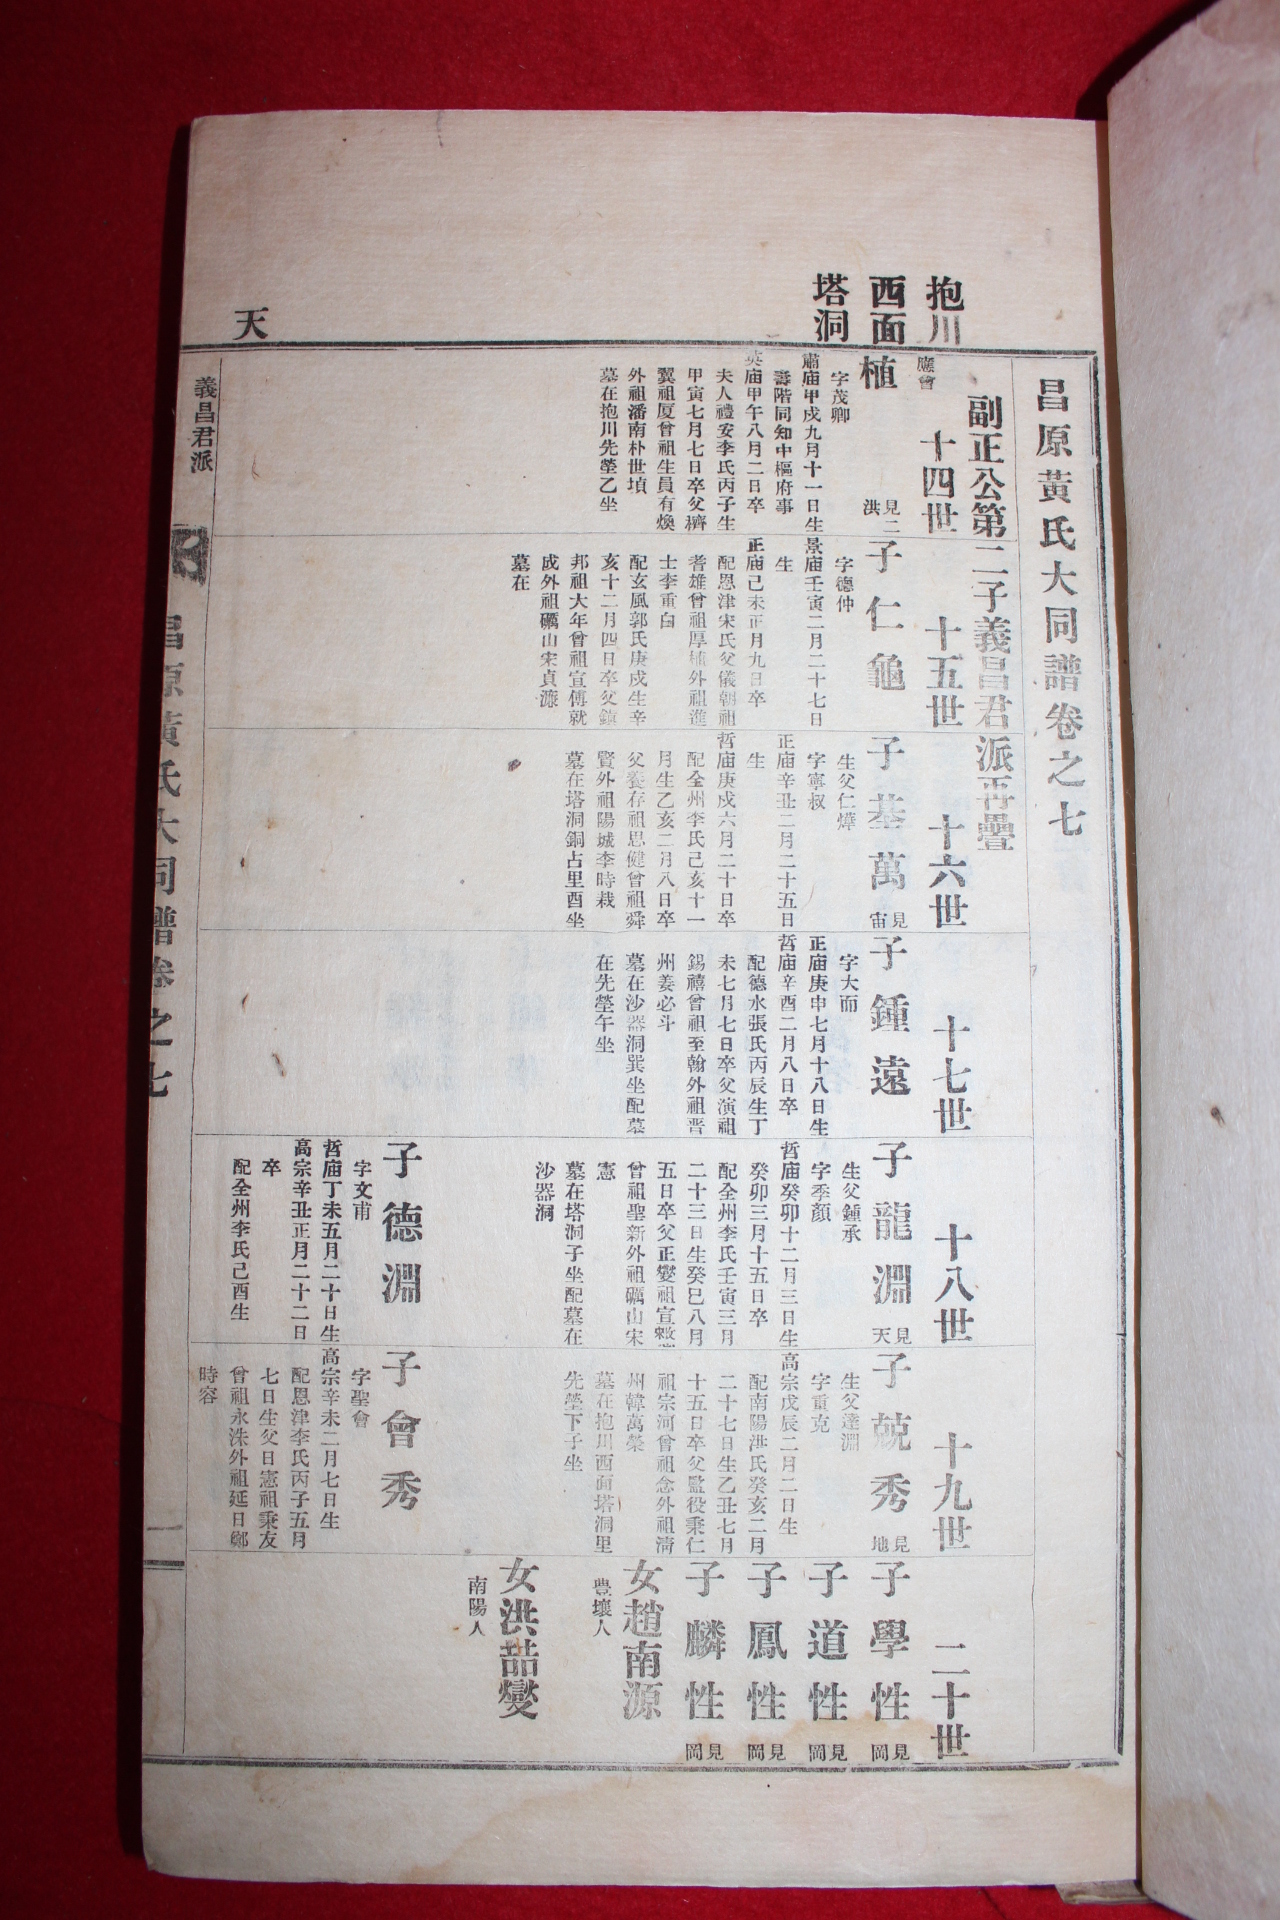 抱川
西面
塔洞
天
昌原黃氏大同譜卷之七
副正公第二子義昌君派再疊
十四世
應會
植
見二
洪
字茂卿
肅庙甲戌九月十一日生
壽階同知中樞府事
英庙甲午八月二日卒
夫人禮安李氏丙子生
甲寅七月七日卒父橚
翼祖厦曾祖生員有煥
外祖潘南朴世塤
墓在抱川先塋乙坐
十五世
子仁龜
字德仲
景庙壬寅二月二十七日
生
正庙己未正月九日卒
配恩津宋氏父儀朝祖
耆雄曾祖厚
外祖進
士李重白
配玄風郭氏庚戌生辛
亥十二月四日卒父鎮
邦祖大年曾祖宣傅就
成外祖礪山宋貞濂
墓在
十六世
子基萬
見
宙
生父仁燁
字寧叔
正庙辛丑二月二十五日
生
哲庙庚戌六月二十日卒
配全州李氏己亥十一
月生乙亥二月八日卒
父養存祖思健曾祖舜
賢外祖陽城李時栽
墓在塔洞銅占里酉坐
十七世
子鍾遠
字大而
正庙庚申七月十八日生
哲庙辛酉二月八日卒
配德水張氏丙辰生丁
未七月七日卒父演祖
錫禧曾祖至翰外祖晋
州姜必斗
墓在沙器洞巽坐配墓
在先塋午坐
十八世
子龍淵
見
天
生父鍾承
字季顏
哲庙癸卯十二月三日生
癸卯三月十五日卒
配全州李氏壬寅三月
二十三日生癸巳八月
五日卒父正燮祖宣
曾祖聖新外祖礪山宋
憲
墓在塔洞子坐配墓在
沙器洞
子德淵
字文甫
哲庙丁未五月二十日生
高宗辛丑正月二十二日
卒
配全州李氏己酉生
十九世
子兢秀
見
地
生父達淵
字重克
高宗戊辰二月二日生
配南陽洪氏癸亥二月
二十七日生乙丑七月
十五日卒父監役秉仁
祖宗河曾祖念外祖淸
州韓萬榮
墓在抱川西面塔洞里
先塋下子坐
子會秀
字聖會
高宗辛未二月七日生
配恩津李氏丙子五月
七日生父日憲祖秉友
曾祖永洙外祖延日鄭
時容
二十世
子學性
見
岡
子道性
見
岡
子鳳性
見
岡
子麟性
見
岡
女趙南源
豊壤人
女洪喆燮
南陽人
義昌君派
昌原黃氏大同譜卷之七
一